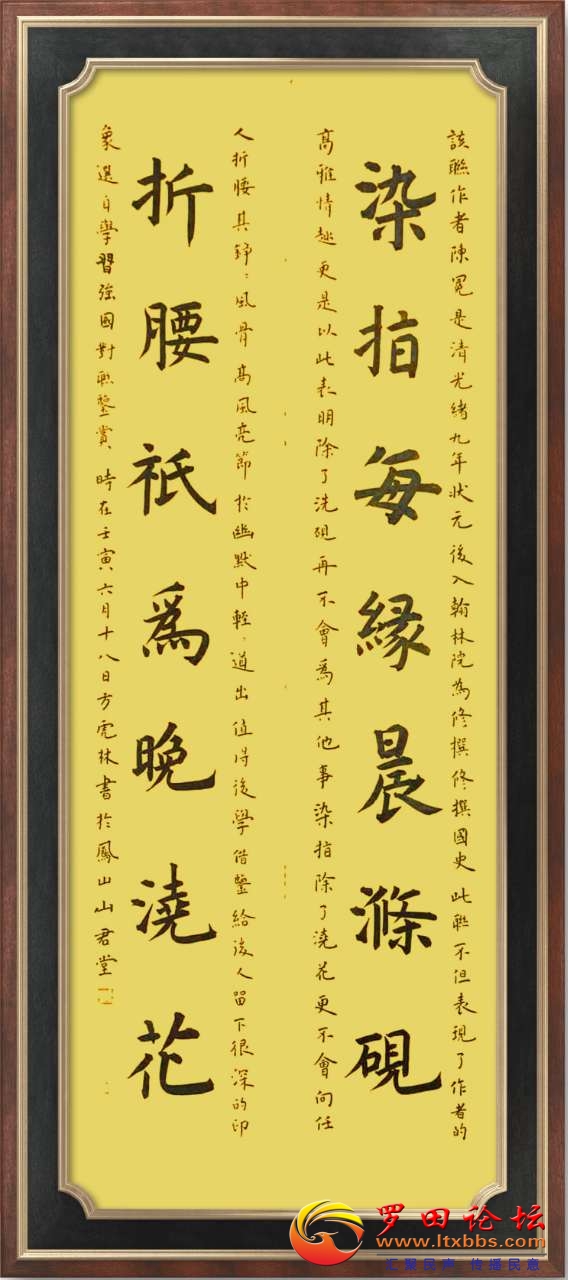 該聯作者陳冕是清光緒九年狀元後入翰林院為修撰修撰國史此聯不但表現了作者的
染指每緣晨滌硯
高雅情趣更是以此表明除了洗硯再不會為其他事染指除了澆花更不會向任
人折腰其錚〻風骨高風亮節於幽默中輕〻道出值得後學借鑒給後人留下很深的印
折腰祇爲晚澆花
象選自學習強國對聯鑒賞時在壬寅六月十八日方虎林書於鳳山山君堂
罗田论坛
www.ltxbbs.com
汇聚民声 传播民意